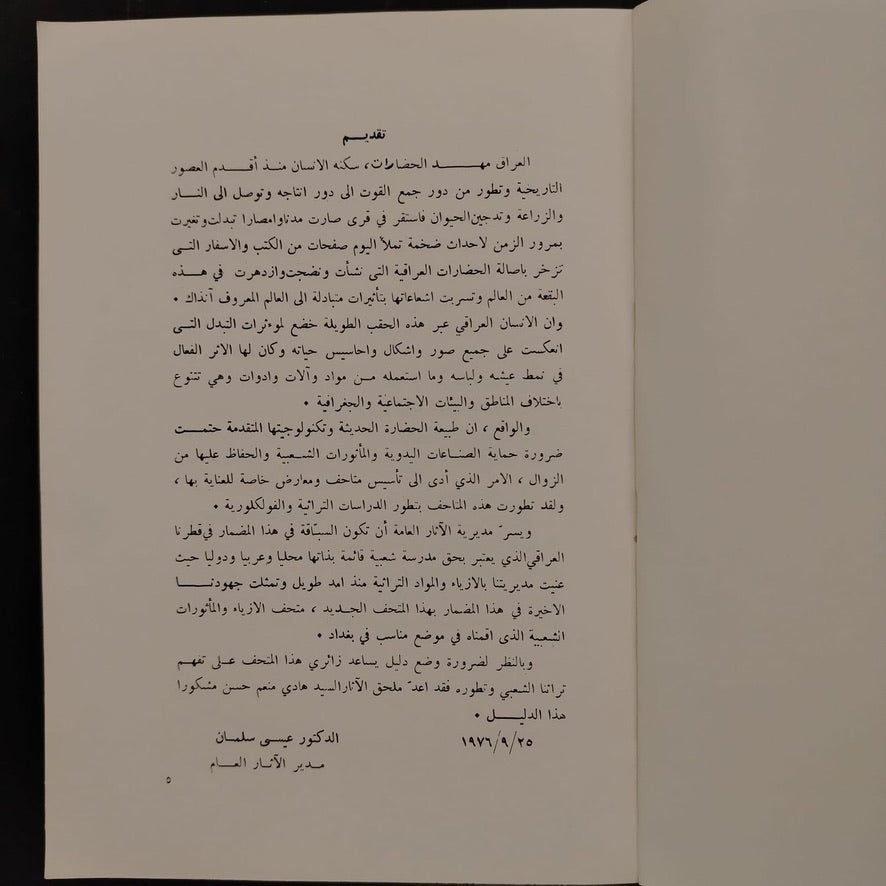 تقديم
العراق مهد الحضارات ، سكنه الانسان منذ أقدم العصور
التاريخية وتطور من دور جمع القوت الى دور انتاجه وتوصل الى النار
والزراعة وتدجين الحيوان فاستقر في قرى صارت مدنا وامصارا تبدلت وتغيرت
بمرور الزمن لاحداث ضخمة تملأ اليوم صفحات من الكتب والاسفار التى
تزخر باصالة الحضارات العراقية التى نشأت ونضجت وازدهرت في هذه
البقعة من العالم وتسربت اشعاعاتها بتأثيرات متبادلة الى العالم المعروف آنذاك .
وان الانسان العراقي عبر هذه الحقب الطويلة خضع لموءثرات التبدل التى
انعكست على جميع صور واشكال واحاسيس حياته وكان لها الاثر الفعال
في نمط عيشه ولباسه وما استعمله من مواد وآلات وادوات وهي تتنوع
باختلاف المناطق والبيئات الاجتماعية والجغرافية .
والواقع ، ان طبيعة الحضارة الحديثة وتكنولوجيتها المتقدمة حتمت
ضرورة حماية الصناعات اليدوية والمأثورات الشعبية والحفاظ عليها من
الزوال ، الامر الذي أدى الى تأسيس متاحف ومعارض خاصة للعناية بها ،
ولقد تطورت هذه المتاحف بتطور الدراسات التراثية والفولكلورية .
ويسرّ مديرية الآثار العامة أن تكون السبّاقة في هذا المضمار في قطرنا
العراقي الذي يعتبر بحق مدرسة شعبية قائمة بذاتها محليا وعربيا ودوليا حيث
عنيت مديريتنا بالازياء والمواد التراثية منذ امد طويل وتمثلت جهودنا
الاخيرة في هذا المضمار بهذا المتحف الجديد ، متحف الازياء والمأثورات
الشعبية الذى اقمناه في موضع مناسب في بغداد .
وبالنظر لضرورة وضع دليل يساعد زائري هذا المتحف على تفهم
تراثنا الشعبي وتطوره فقد اعدّ ملحق الآثار السيد هادي منعم حسن مشكورا
هذا الدليل .
الدكتور عيسى سلمان
٢٥/٩/١٩٧٦
مدير الآثار العام
٥